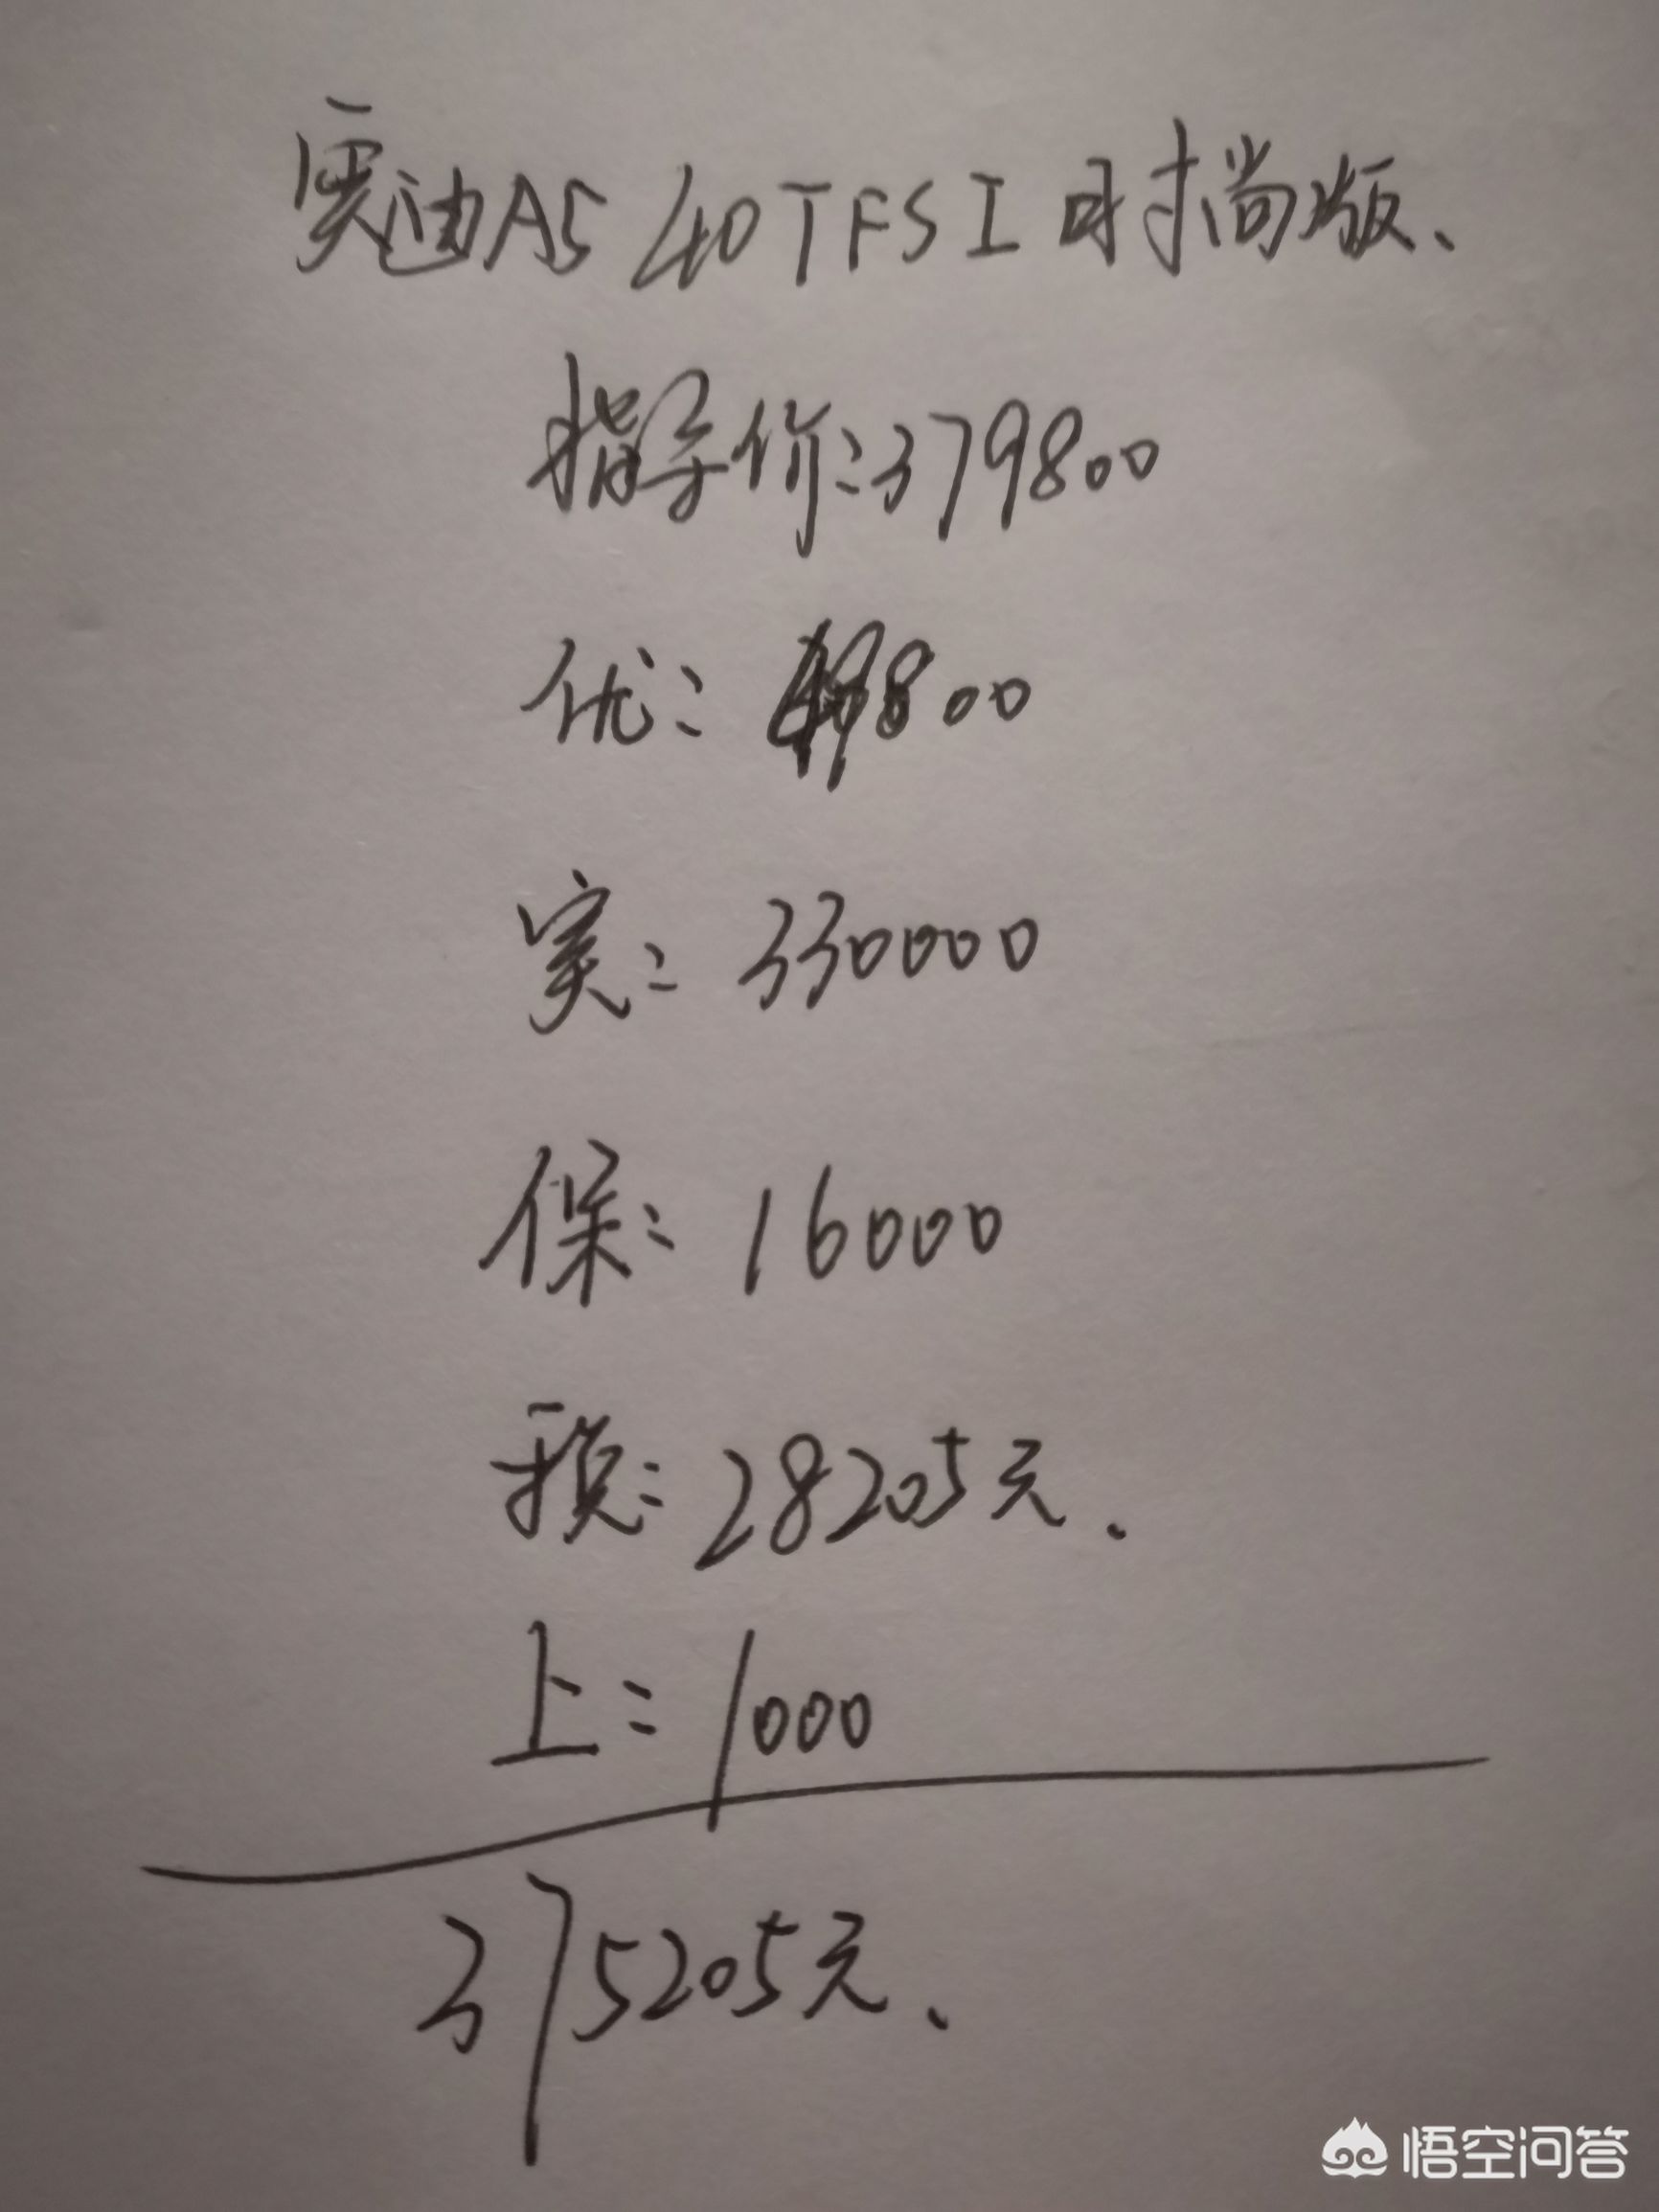 奥迪A5 40TFSI时尚版、
指导价:379800
优: 49800
实: 330000
保: 16000
税: 28205元.
上: 1000
375205元、
悟空问答